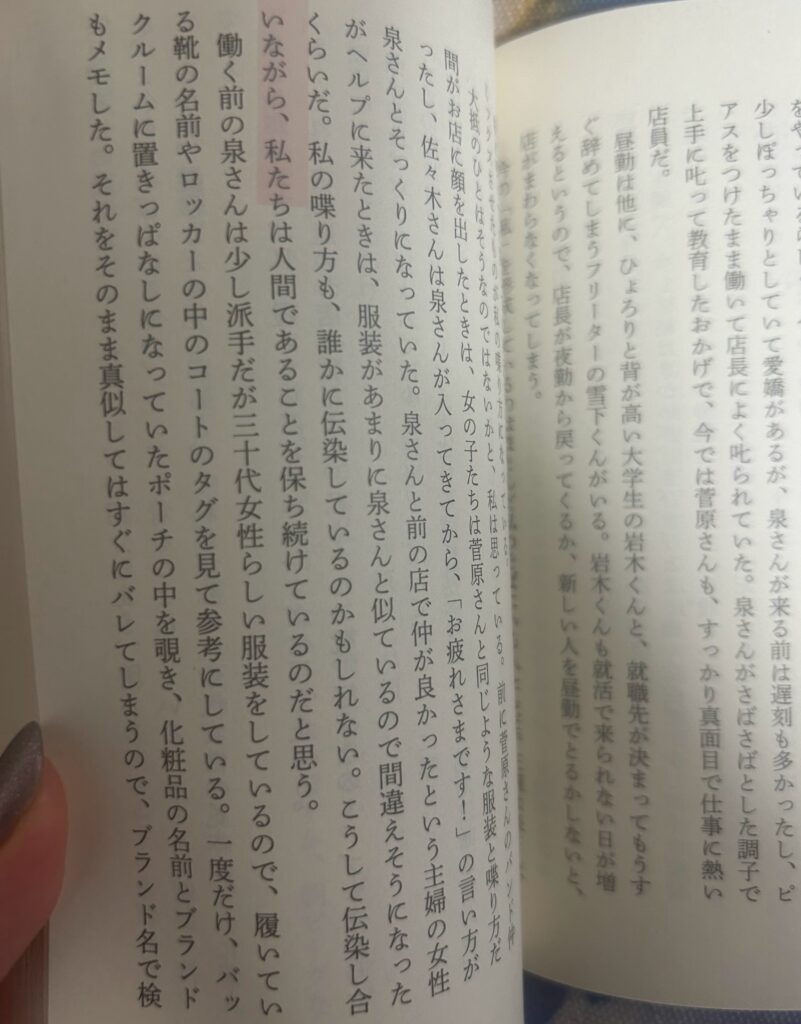 をやっているらし
少しぽっちゃりとしていて愛嬌があるが、泉さんが来る前は遅刻も多かったし、ピ
アスをつけたまま働いて店長によく叱られていた。泉さんがさばさばとした調子で
上手に叱って教育したおかげで、今では菅原さんも、すっかり真面目で仕事に熱い
店員だ。
昼勤は他に、ひょろりと背が高い大学生の岩木くんと、就職先が決まってもうす
ぐ辞めてしまうフリーターの雪下くんがいる。岩木くんも就活で来られない日が増
えるというので、店長が夜勤から戻ってくるか、新しい人を昼勤でとるかしないと、
店がまわらなくなってしまう。
今の「私」を形成しているのは
私の喋り方になっている。
大抵のひとはそうなのではないかと、私は思っている。前に菅原さんのバンド仲
間がお店に顔を出したときは、女の子たちは菅原さんと同じような服装と喋り方だ
ったし、佐々木さんは泉さんが入ってきてから、「お疲れさまです!」の言い方が
泉さんとそっくりになっていた。泉さんと前の店で仲が良かったという主婦の女性
がヘルプに来たときは、服装があまりに泉さんと似ているので間違えそうになった
くらいだ。私の喋り方も、誰かに伝染しているのかもしれない。こうして伝染し合
いながら、私たちは人間であることを保ち続けているのだと思う。
働く前の泉さんは少し派手だが三十代女性らしい服装をしているので、履いてい
る靴の名前やロッカーの中のコートのタグを見て参考にしている。一度だけ、バッ
クルームに置きっぱなしになっていたポーチの中を覗き、化粧品の名前とブランド
もメモした。それをそのまま真似してはすぐにバレてしまうので、ブランド名で検